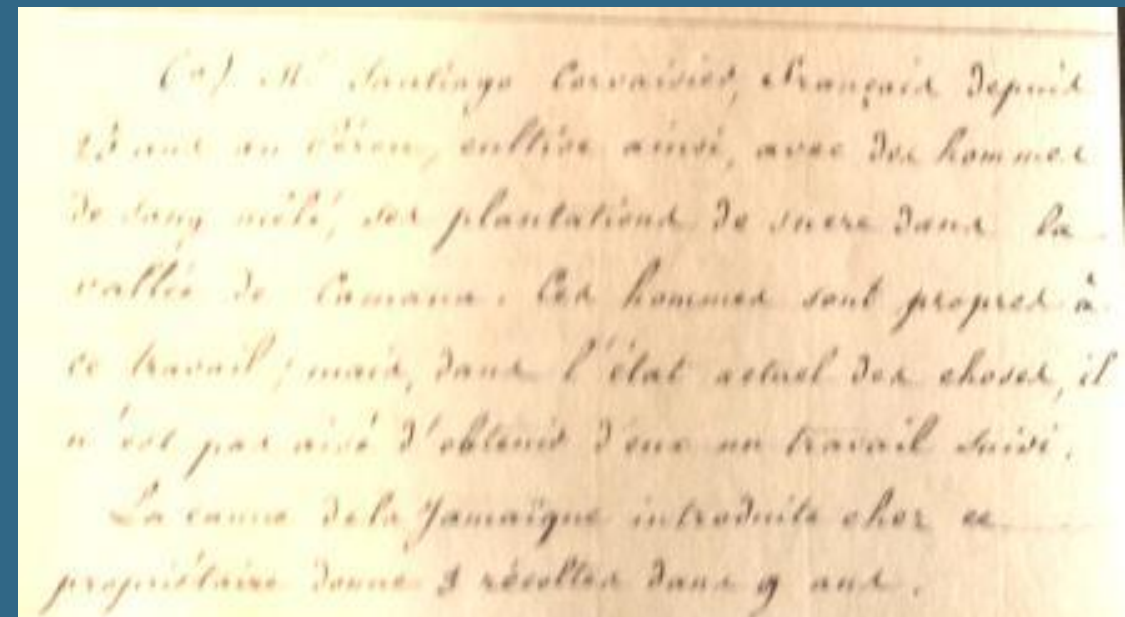 (a) Mr Santiago Corvaisier, Français depuis
23 ans au Pérou, cultive ainsi, avec des hommes
de sang mêlé, ses plantations de sucre dans la
vallée de Camana. Ces hommes sont propres à
ce travail ; mais, dans l'état actuel des choses, il
n'est pas aisé d'obtenir d'eux un travail suivi.
La canne de la Jamaïque introduite chez ce
propriétaire donne 3 récoltes dans 9 ans.